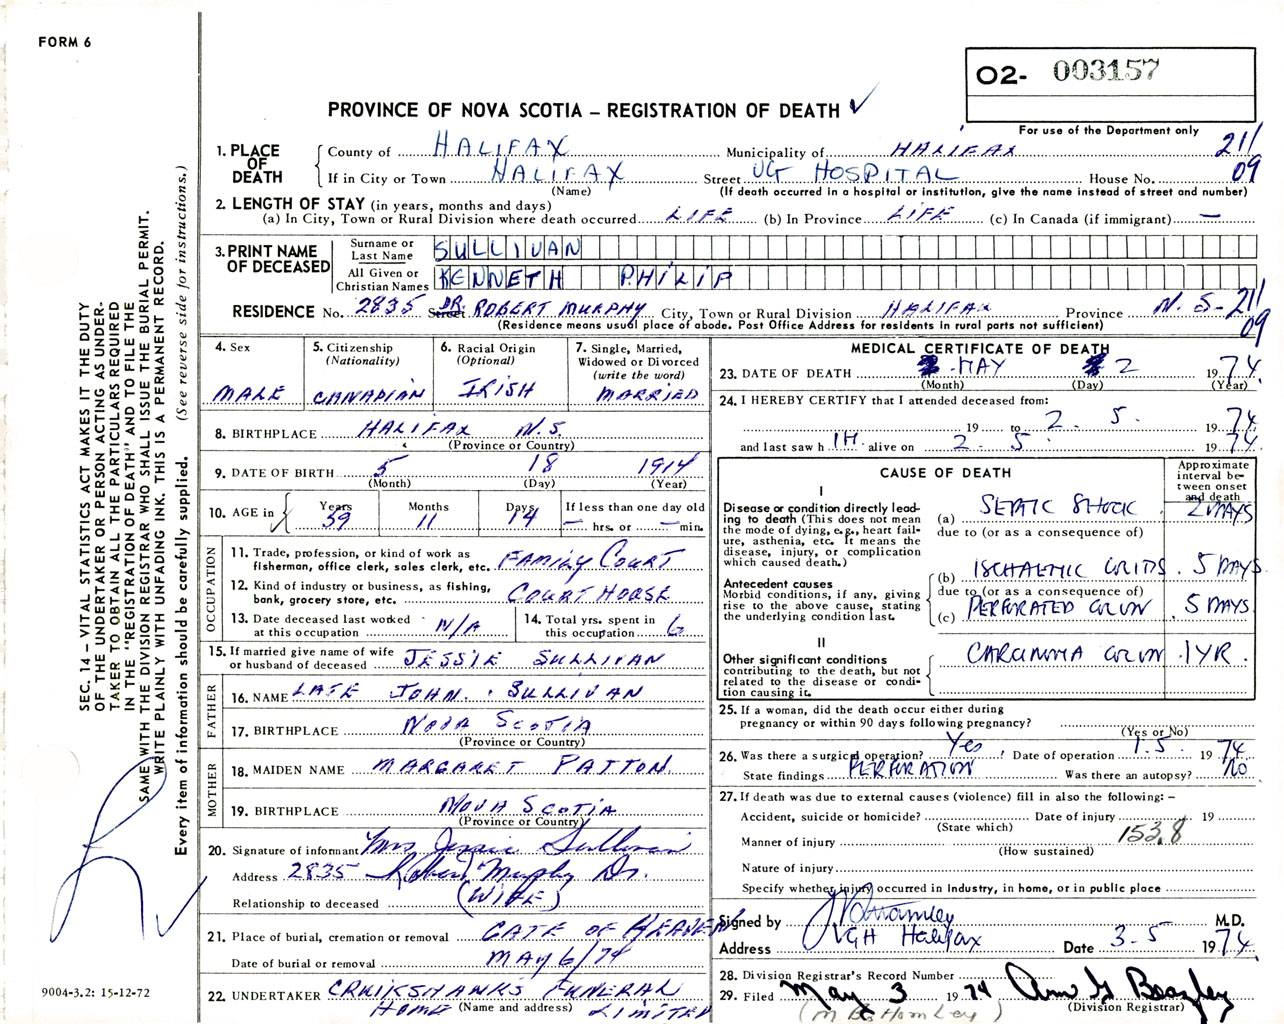 FORM 6
O2- 003157
PROVINCE OF NOVA SCOTIA – REGISTRATION OF DEATH ✓
For use of the Department only
1. PLACE OF DEATH
County of HALIFAX Municipality of HALIFAX 211
If in City or Town HALIFAX Street VG HOSPITAL House No. 09
(Name) (If death occurred in a hospital or institution, give the name instead of street and number)
2. LENGTH OF STAY (in years, months and days)
(a) In City, Town or Rural Division where death occurred LIFE (b) In Province LIFE (c) In Canada (if immigrant) —
3. PRINT NAME OF DECEASED
Surname or Last Name SULLIVAN
All Given or Christian Names KENNETH PHILIP
RESIDENCE No. 2835 Street DR. ROBERT MURPHY City, Town or Rural Division HALIFAX Province N.S. 211
(Residence means usual place of abode. Post Office Address for residents in rural parts not sufficient) 09
4. Sex MALE
5. Citizenship (Nationality) CANADIAN
6. Racial Origin (Optional) IRISH
7. Single, Married, Widowed or Divorced (write the word) MARRIED
8. BIRTHPLACE HALIFAX N.S.
(Province or Country)
9. DATE OF BIRTH 5 18 1914
(Month) (Day) (Year)
10. AGE in Years 59 Months 11 Days 14 If less than one day old — hrs. or — min.
OCCUPATION
11. Trade, profession, or kind of work as fisherman, office clerk, sales clerk, etc. FAMILY COURT
12. Kind of industry or business, as fishing, bank, grocery store, etc. COURT HOUSE
13. Date deceased last worked at this occupation N/A
14. Total yrs. spent in this occupation 6
15. If married give name of wife or husband of deceased JESSIE SULLIVAN
FATHER
16. NAME LATE JOHN. SULLIVAN
17. BIRTHPLACE NOVA SCOTIA
(Province or Country)
MOTHER
18. MAIDEN NAME MARGARET PATTON
19. BIRTHPLACE NOVA SCOTIA
(Province or Country)
20. Signature of informant Mrs Jessie Sullivan
Address 2835 Robert Murphy Dr.
Relationship to deceased (WIFE)
21. Place of burial, cremation or removal GATE OF HEAVEN
Date of burial or removal MAY 6/74
22. UNDERTAKER CRUIKSHANKS FUNERAL
HOME (Name and address) LIMITED
MEDICAL CERTIFICATE OF DEATH
23. DATE OF DEATH MAY 2 1974
(Month) (Day) (Year)
24. I HEREBY CERTIFY that I attended deceased from:
19 to 2. 5. 1974
and last saw h IM alive on 2 - 5 1974
CAUSE OF DEATH
Approximate interval between onset and death
I
Disease or condition directly leading to death (This does not mean the mode of dying, e.g., heart failure, asthenia, etc. It means the disease, injury, or complication which caused death.)
(a) SEPTIC SHOCK 2 DAYS
due to (or as a consequence of)
Antecedent causes
Morbid conditions, if any, giving rise to the above cause, stating the underlying condition last.
(b) ISCHAEMIC 5 DAYS
due to (or as a consequence of)
(c) PERFORATED COLON 5 DAYS
II
Other significant conditions contributing to the death, but not related to the disease or condition causing it.
CARCINOMA COLON 1 YR.
25. If a woman, did the death occur either during pregnancy or within 90 days following pregnancy?
(Yes or No)
26. Was there a surgical operation? Yes Date of operation 1.5. 1974
State findings PERFORATION Was there an autopsy? NO
27. If death was due to external causes (violence) fill in also the following: –
Accident, suicide or homicide? Date of injury 19
(State which)
Manner of injury 153.8
(How sustained)
Nature of injury
Specify whether injury occurred in Industry, in home, or in public place
Signed by M.D.
Address VGH Halifax Date 3-5 1974
28. Division Registrar's Record Number
29. Filed May 3 1974 Ann G Beazley
(Division Registrar)
SEC. 14 – VITAL STATISTICS ACT MAKES IT THE DUTY
OF THE UNDERTAKER OR PERSON ACTING AS UNDER-
TAKER TO OBTAIN ALL THE PARTICULARS REQUIRED
IN THE "REGISTRATION OF DEATH" AND TO FILE THE
SAME WITH THE DIVISION REGISTRAR WHO SHALL ISSUE THE BURIAL PERMIT.
WRITE PLAINLY WITH UNFADING INK. THIS IS A PERMANENT RECORD.
Every item of information should be carefully supplied. (See reverse side for instructions.)
9004-3.2: 15-12-72